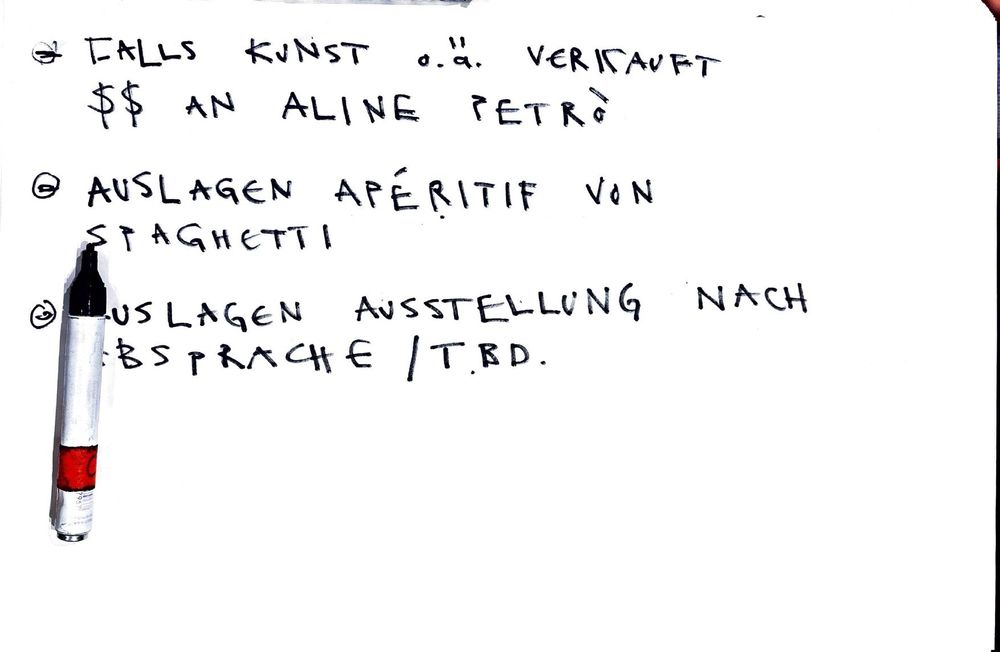 FALLS KUNST o.ä. VERKAUFT
$$ AN ALINE PETRÒ
AUSLAGEN APÉRITIF VON
SPAGHETTI
AUSLAGEN AUSSTELLUNG NACH
ABSPRACHE / T.B.D.